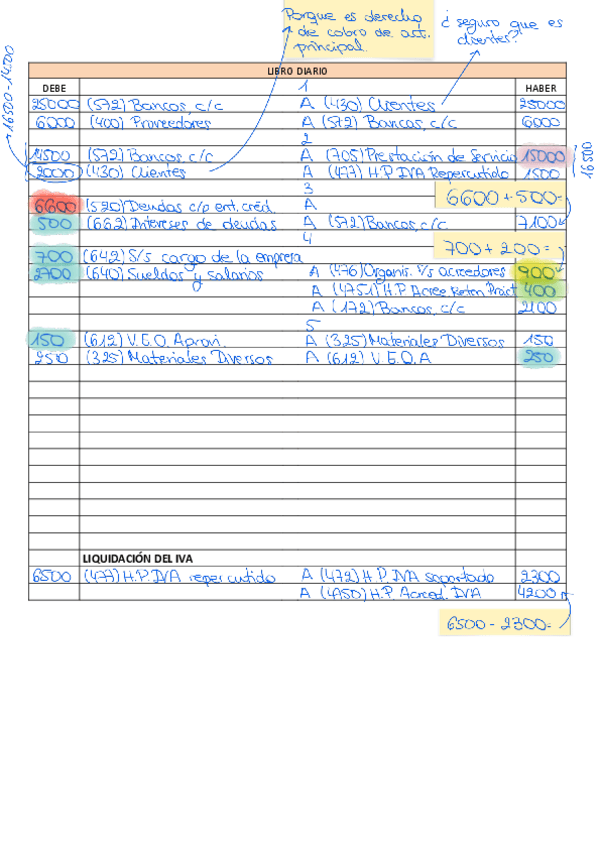 Porque es derecho
de cobro de act.
principal.
¿ seguro que es
clientes?
16500-14500
LIBRO DIARIO
DEBE 1 HABER
25000 (572) Bancos, c/c A (430) Clientes 25000
6000 (400) Proveedores A (572) Bancos, c/c 6000
2
14500 (572) Bancos, c/c A (705) Prestación de Servicio 15000
2000 (430) Clientes A (477) H.P. IVA Repercutido 1500
16500
3
6600 + 500=
6600 (520) Deudas c/p ent. créd. A
500 (662) Intereses de deudas A (572) Bancos, c/c 7100
4
700 + 200 =
700 (642) S/s cargo de la empresa
2700 (640) Sueldos y salarios A (476) Organis. S/s acreedores 900
A (4751) H.P Acree. Reten. Pract 400
A (172) Bancos, c/c 2100
5
150 (612) V.E.O. Aprovi. A (325) Materiales Diversos 150
250 (325) Materiales Diversos A (612) V.E.O.A 250
LIQUIDACIÓN DEL IVA
6500 (477) H.P. IVA repercutido A (472) H.P. IVA soportado 2300
A (4750) H.P. Acreed. IVA 4200
6500 - 2300=